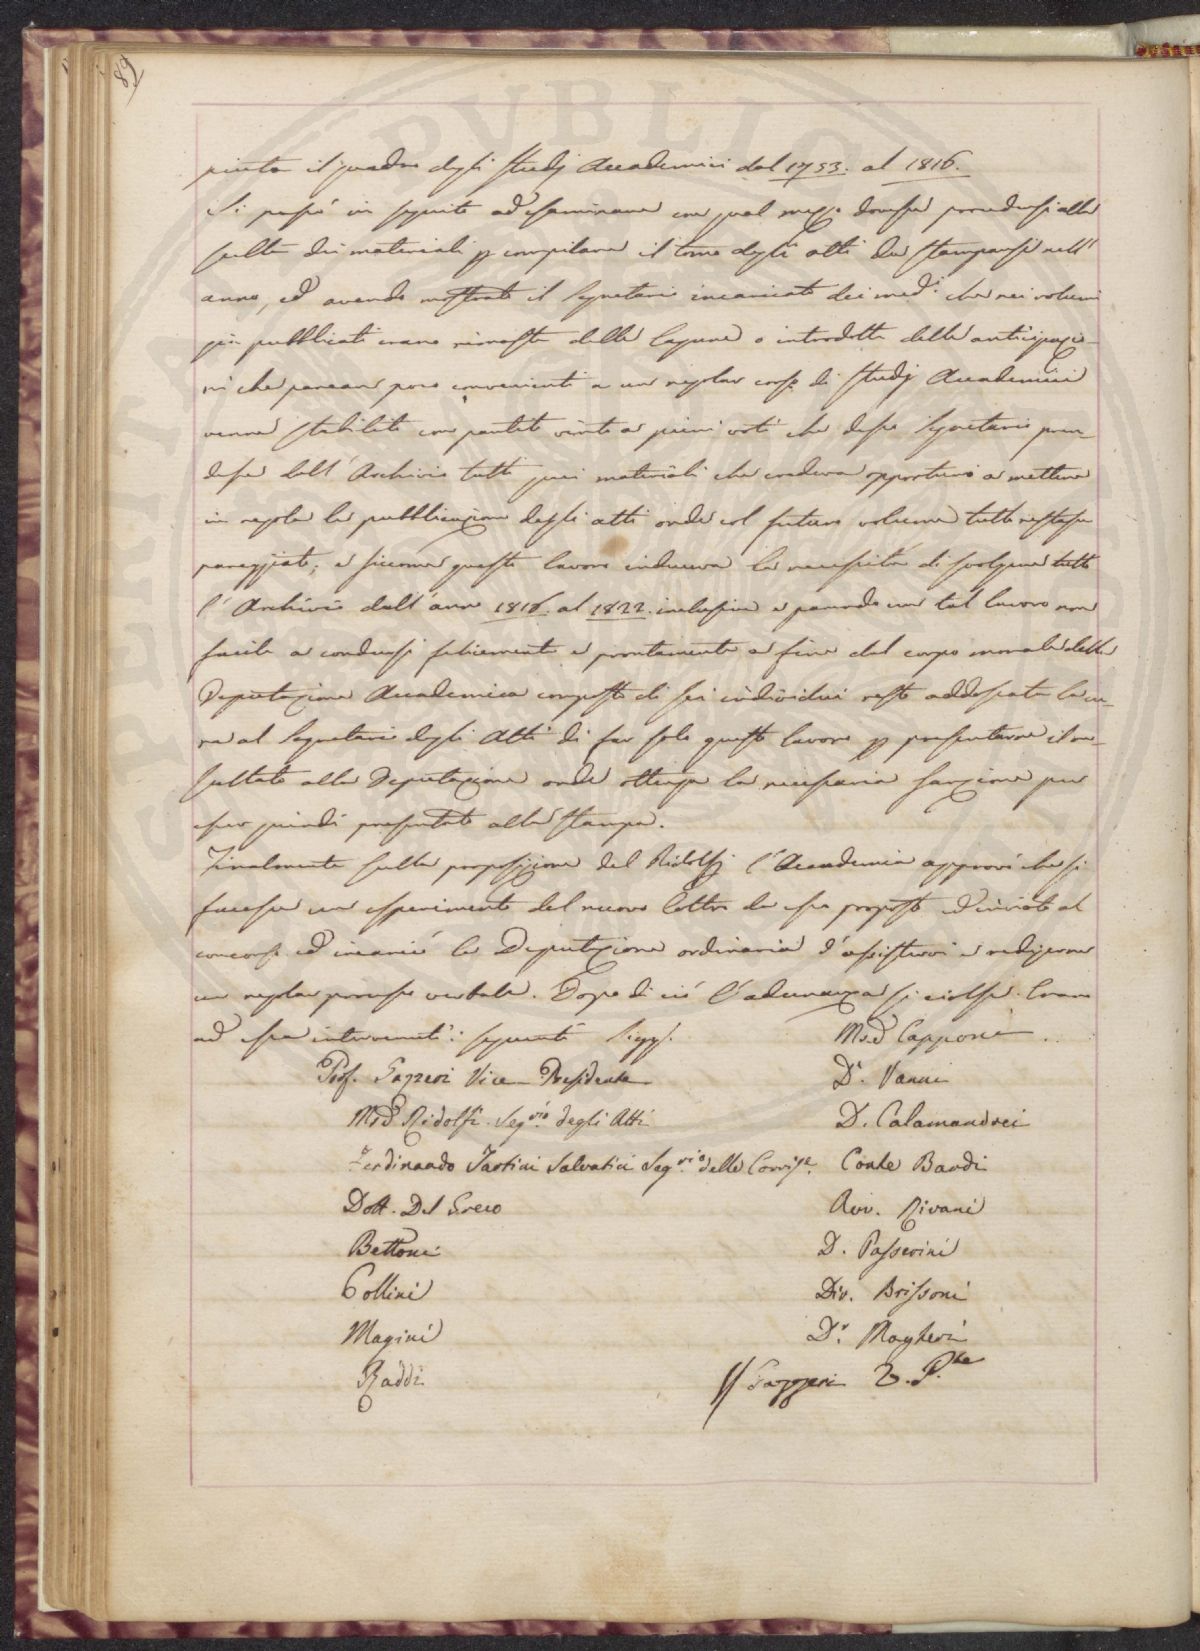 82
il quadro degli Studj Accademici dal 1753. al 1816.
Si passò in seguito ad esaminare con qual mezzo dovesse procedersi alla
scelta dei materiali p compilare il tomo degli atti da stamparsi nell'
anno, ed avendo mostrato il Segretario incaricato dei med.i che nei volumi
già pubblicati erano rimaste delle lagune o introdotte delle anticipazio-
ni che parean poco convenienti a un regolar corso di Studj Accademici
venne stabilito con partito vinto a pieni voti che desso Segretario pren-
desse dall'Archivio tutti quei materiali che credeva opportuni a mettere
in regola la pubblicazione degli atti onde col futuro volume tutto restasse
pareggiato; e siccome questo lavoro induceva la necessità di svolgere tutto
l'Archivio dall'anno 1816. al 1822. inclusive e parendo un tal lavoro non
facile a condursi felicemente e prontamente a fine dal corpo morale della
Deputazione Accademica composta di sei individui restò addossata la cu-
ra al Segretario degli Atti di far solo questo lavoro p presentarne il re-
sultato alla Deputazione onde ottenga la necessaria sanzione per
esser quindi presentato alla stampa.
Finalmente sulla proposizione del Ridolfi l'Accademia approvò che si
facesse un esperimento del nuovo Coltro da esso proposto ed inviato al
concorso ed incaricò la Deputazione ordinaria d'assistervi e redigerne
un regolar processo verbale. Dopo di ciò l'adunanza si sciolse. Erano
ad essa intervenuti i seguenti Sigg.
Prof. Gazzeri Vice-Presidente
M.se Ridolfi Seg.rio degli Atti
Ferdinando Tartini Salvatici Seg.rio delle Corrisp.e
Dott. Del Greco
Bettoni
Collini
Magini
Raddi
M.se Capponi
D.r Vanni
D. Calamandrei
Conte Bardi
Avv. Rivani
D. Passerini
Div. Brissoni
D.r Magheri
Gazzeri V. P.te